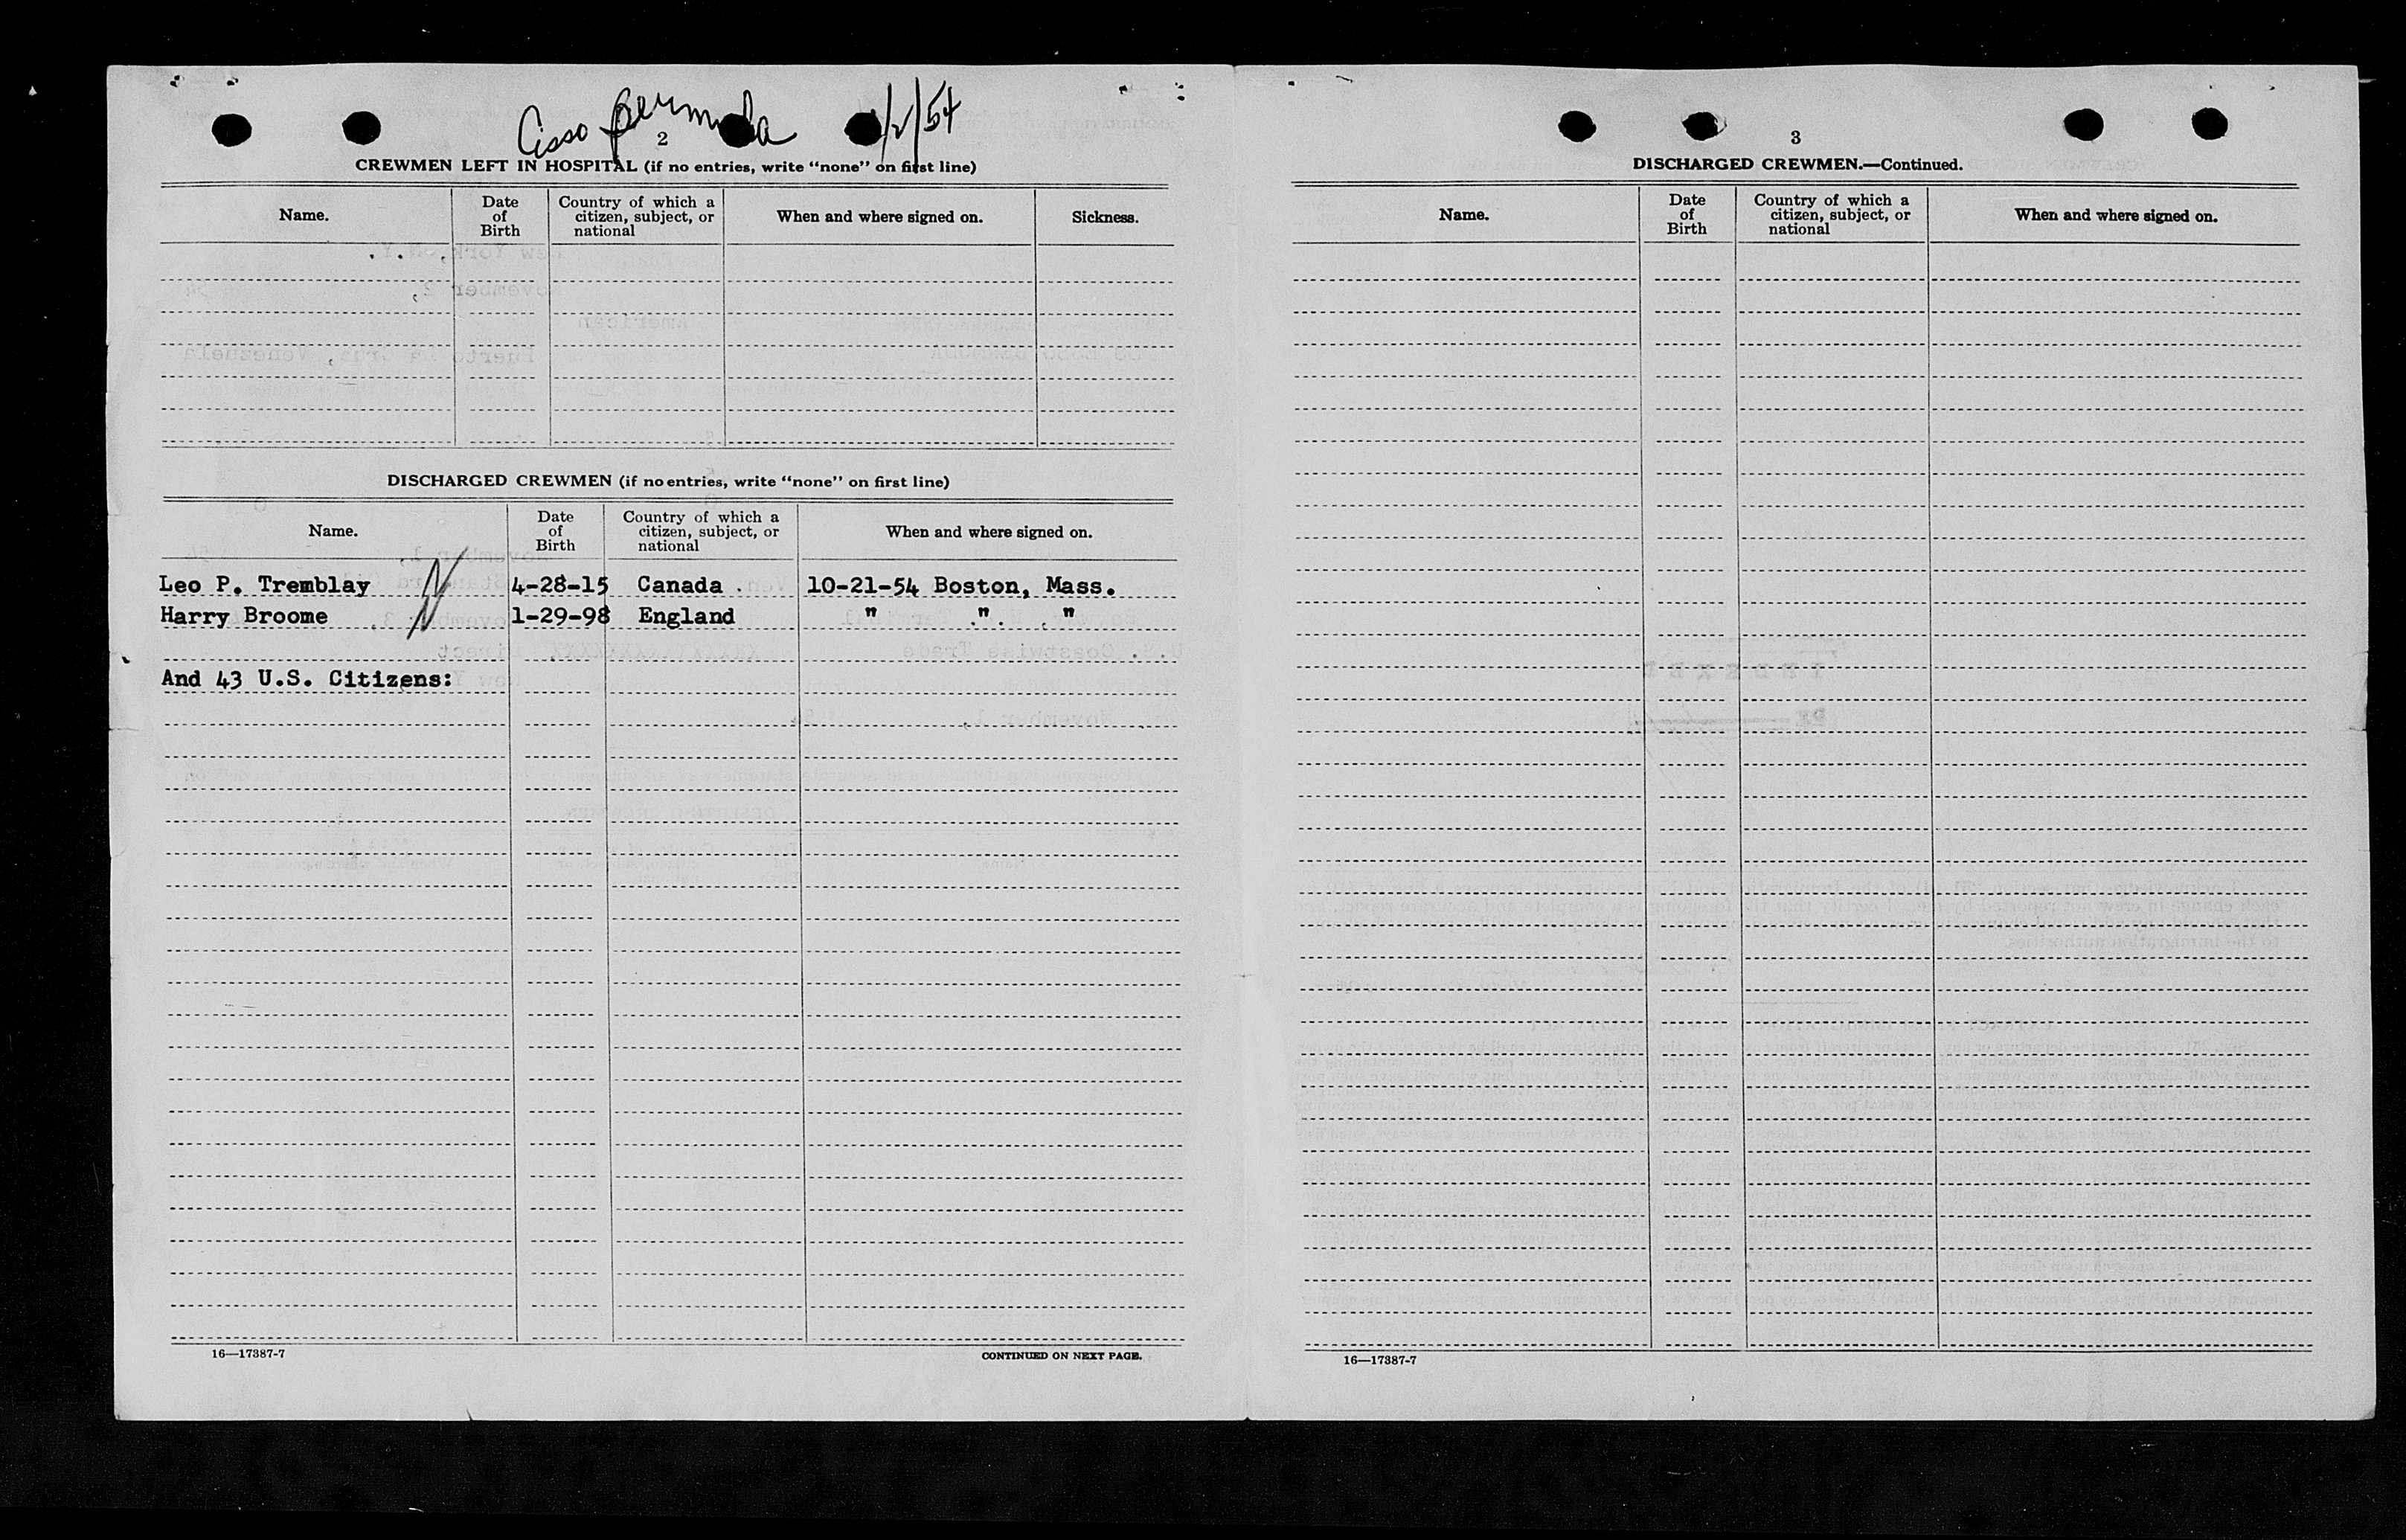 Esso Bermuda 11/2/54
2
CREWMEN LEFT IN HOSPITAL (if no entries, write "none" on first line)
Name. Date of Birth Country of which a citizen, subject, or national When and where signed on. Sickness.
DISCHARGED CREWMEN (if no entries, write "none" on first line)
Name. Date of Birth Country of which a citizen, subject, or national When and where signed on.
Leo P. Tremblay 4-28-15 Canada 10-21-54 Boston, Mass.
Harry Broome 1-29-98 England " " "
And 43 U.S. Citizens:
16—17387-7 CONTINUED ON NEXT PAGE.
3
DISCHARGED CREWMEN.—Continued.
Name. Date of Birth Country of which a citizen, subject, or national When and where signed on.
16—17387-7